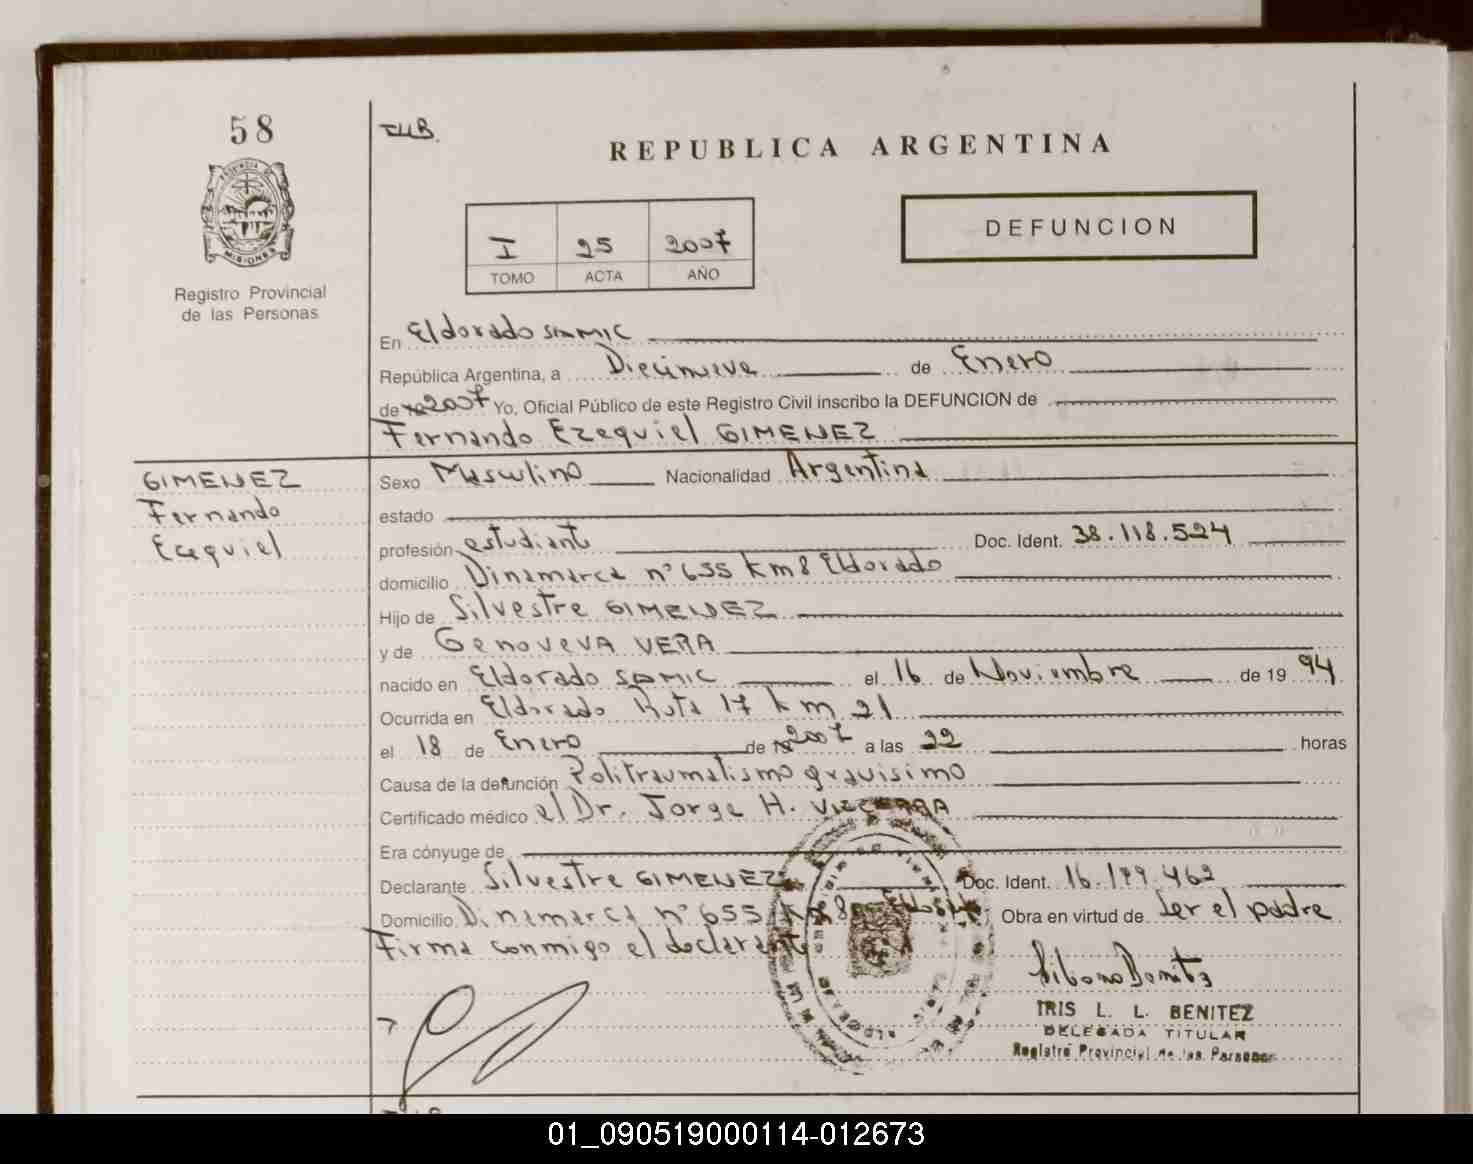 58
REPUBLICA ARGENTINA
PROVINCIA DE
MISIONES
Registro Provincial
de las Personas
I 25 2007
TOMO ACTA AÑO
DEFUNCION
En Eldorado SAMIC
República Argentina, a Diecinueve de Enero
de 2007 Yo, Oficial Público de este Registro Civil inscribo la DEFUNCION de
Fernando Ezequiel GIMENEZ
GIMENEZ
Fernando
Ezequiel
Sexo Masculino Nacionalidad Argentina
estado
profesión estudiante Doc. Ident. 38.118.524
domicilio Dinamarca nº 655 Km 8 Eldorado
Hijo de Silvestre GIMENEZ
y de Genoveva VERA
nacido en Eldorado SAMIC el 16 de Noviembre de 19 94
Ocurrida en Eldorado Ruta 17 Km 21
el 18 de Enero de 2007 a las 22 horas
Causa de la defunción Politraumatismo gravisimo
Certificado médico el Dr. Jorge H.
Era cónyuge de
Declarante Silvestre GIMENEZ Doc. Ident. 16.199.462
Domicilio Dinamarca nº 655 Km 8 Obra en virtud de ser el padre
Firma conmigo el declarante
IRIS L. L. BENITEZ
DELEGADA TITULAR
Registro Provincial de las Personas
01_090519000114-012673